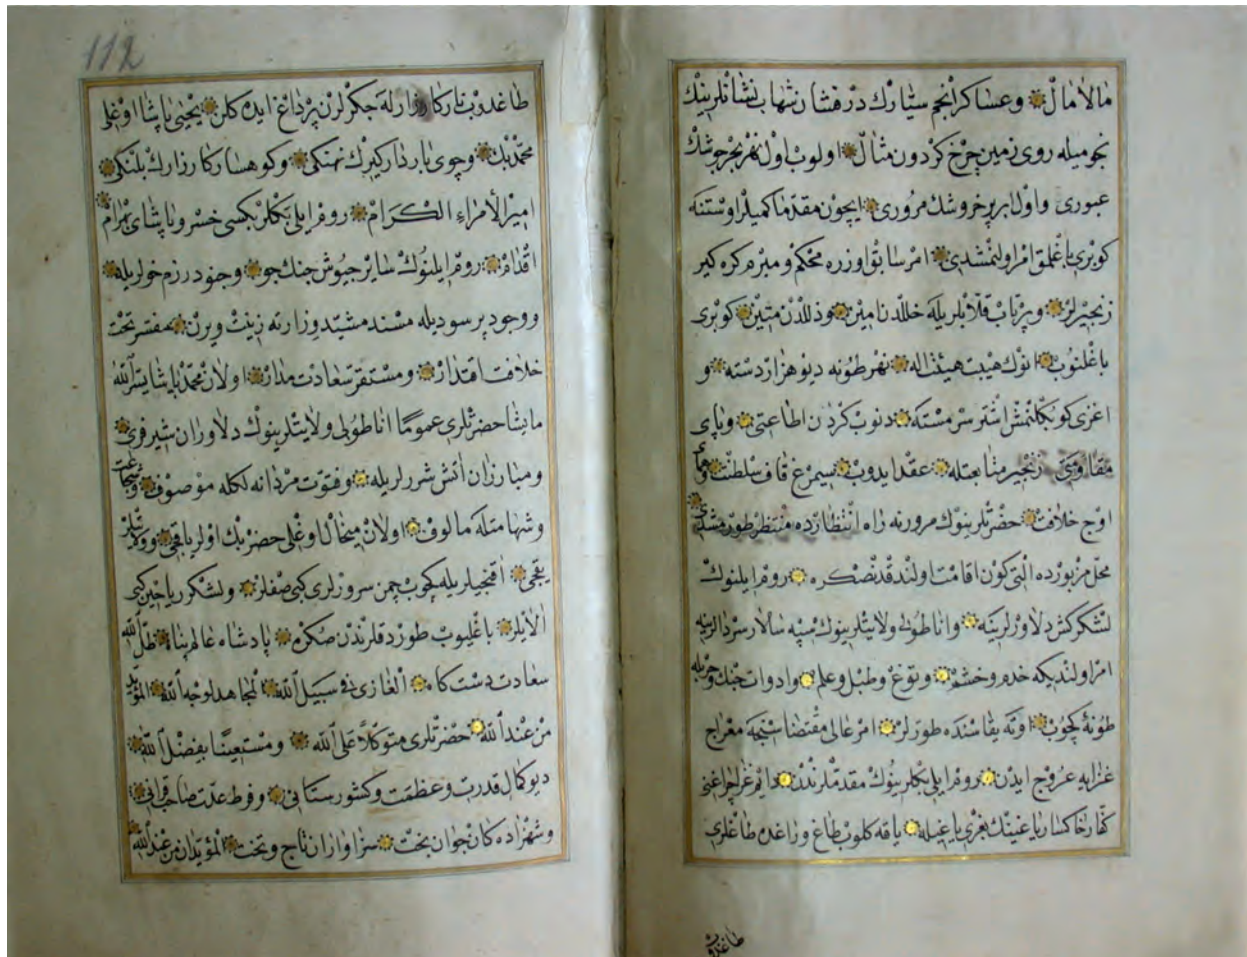 مالامال وعساكر انجم ستارك درفشان شهاب نشانلرينك
نجوميله روى زمين چرخ كردون مثال اولوب اول نهر بحر جوشك
عبورى واول ابر پر خروشك مرورى ايچون مقدما كميلر اوستنه
كوپرى باغلمق امر اولنمشدى امر سابق اوزره محكم ومبرم كره كير
زنجيرلر وپرتاب قلابلر يله خللدن امين وذللدن متين كوپرى
باغلنوب انوك هيبت هيئت اله نهر طونه ديو هزار دسته و
اغزى كوپكلنمش اشتر سرمسته دنوب كردن اطاعتى وپاى
مقاومتى زنجير متابعتله عقد ايدوب سيمرغ قاف سلطنت وهماى
اوج خلافت حضرتلرينوك مرورنه راه انتظارده منتظر طورمشدى
محل مزبورده التى كون اقامت اولندقدنصكره روم ايلنوك
لشكركش دلاورلرينه واناطولى ولايتلرينوك سپه سالار سردارلرينه
امر اولنديكه خدم وحشم وتوغ وطبل وعلم وادوات جنك وحربله
طونه كچوب اوته يقاسنده طورلر امر عالى مقتضاسنجه معراج
غزايه عروج ايدن روم ايلى بكلرينوك مقدملرندن دايم غزا چراغنى
كفار خاكسار ياغينك بغرى ياغيله ياقه كلوب طاغ وزاغده طاغلرى
طاغدوب
112
طاغدوب نار كارزارله جكرلرن پرداغ ايده كلن يحيى پاشا اوغلى
محمد بك وجوى بار دار كيرك نهنكى وكوهسار كارزارك پلنكى
امير الأمراء الكرام روم ايلى بكلربكسى خسرو پاشاى بهرام
اقدام روم ايلنوك ساير جيوش جنك جو وجنود رزم خولريله
ووجود پر سوديله مسند مشيد وزارته زينت ويرن مفسر تحت
خلافت اقتدار ومستقر سعادت مدار اولان محمد پاشا يسر الله
مايشا حضرتلرى عموما اناطولى ولايتلرينوك دلاوران شير فرى
ومبارزان اتش شررلريله وفتوت مردانه لكله موصوف وشجاعت
وشهامتله مالوف اولان ميخال اوغلى حضر بك اولر باقى وويلر
يقجى اقنجيلريله كچوب چمن سروزلرى كبى صفلر ولشكر رياحين كبى
الايلر باغليوب طوردقلرندن صكره پادشاه عالم پناه ظل الله
سعادت دستكاه الغازى فى سبيل الله المجاهد لوجه الله المؤيد
من عند الله حضرتلرى متوكلا على الله ومستعينا بفضل الله
ديو كمال قدرت وعظمت وكشورستانى وفرط عدت صاحب قرانى
وشهزاده كان جوان بخت سزاواران تاج وتخت المؤيدان من عند الله